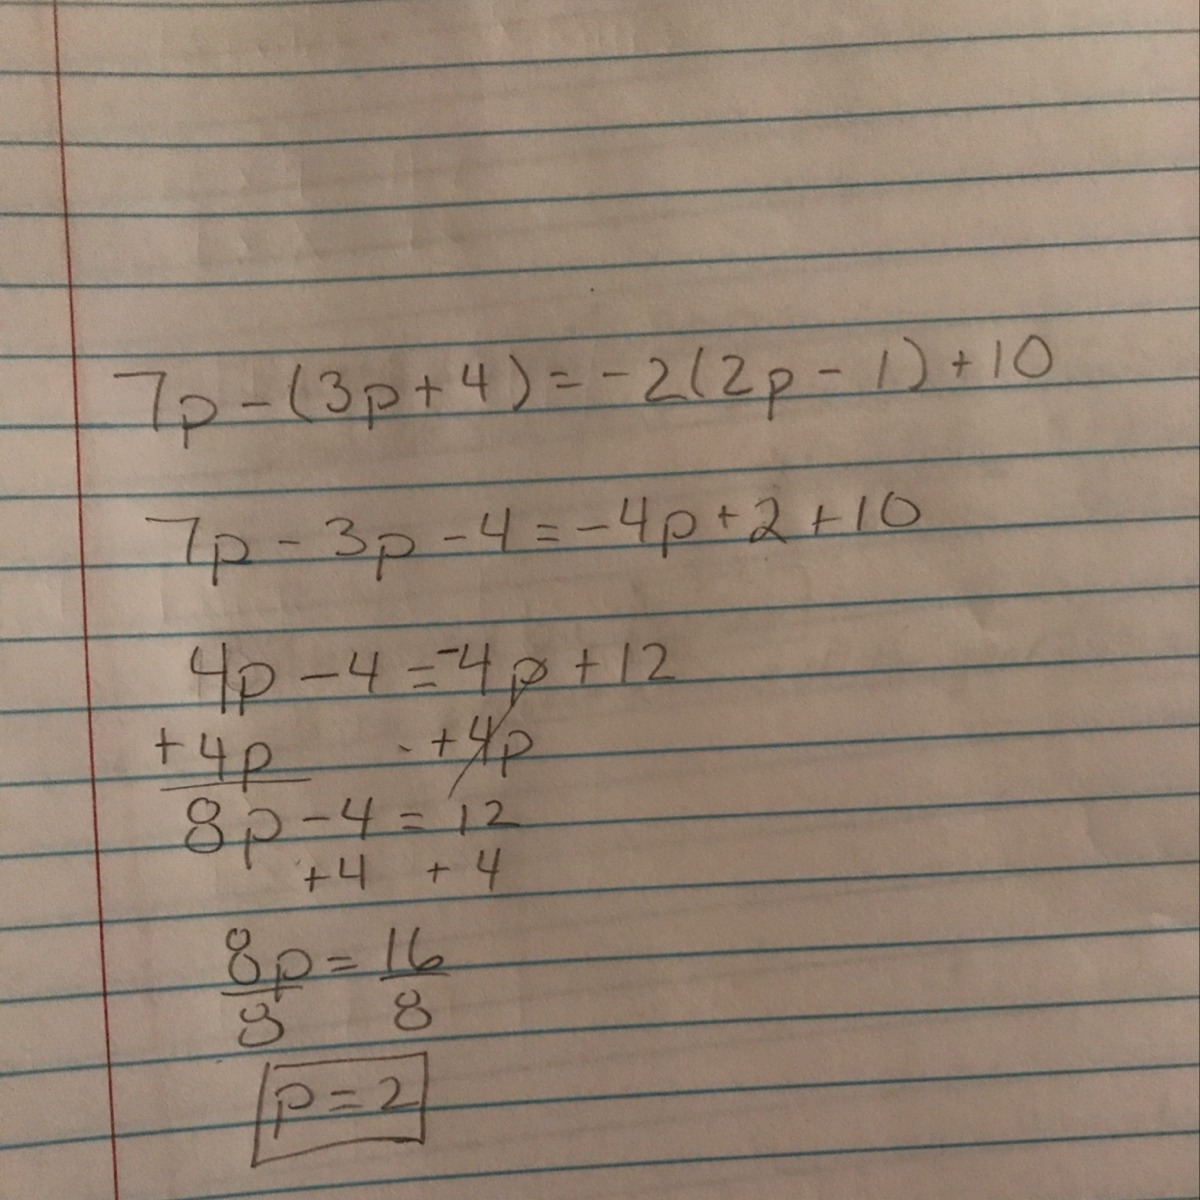 7p - (3p + 4) = -2(2p - 1) + 10
7p - 3p - 4 = -4p + 2 + 10
4p - 4 = -4p + 12
+ 4p + 4p
8p - 4 = 12
+4 + 4
8p = 16
8 8
p = 2